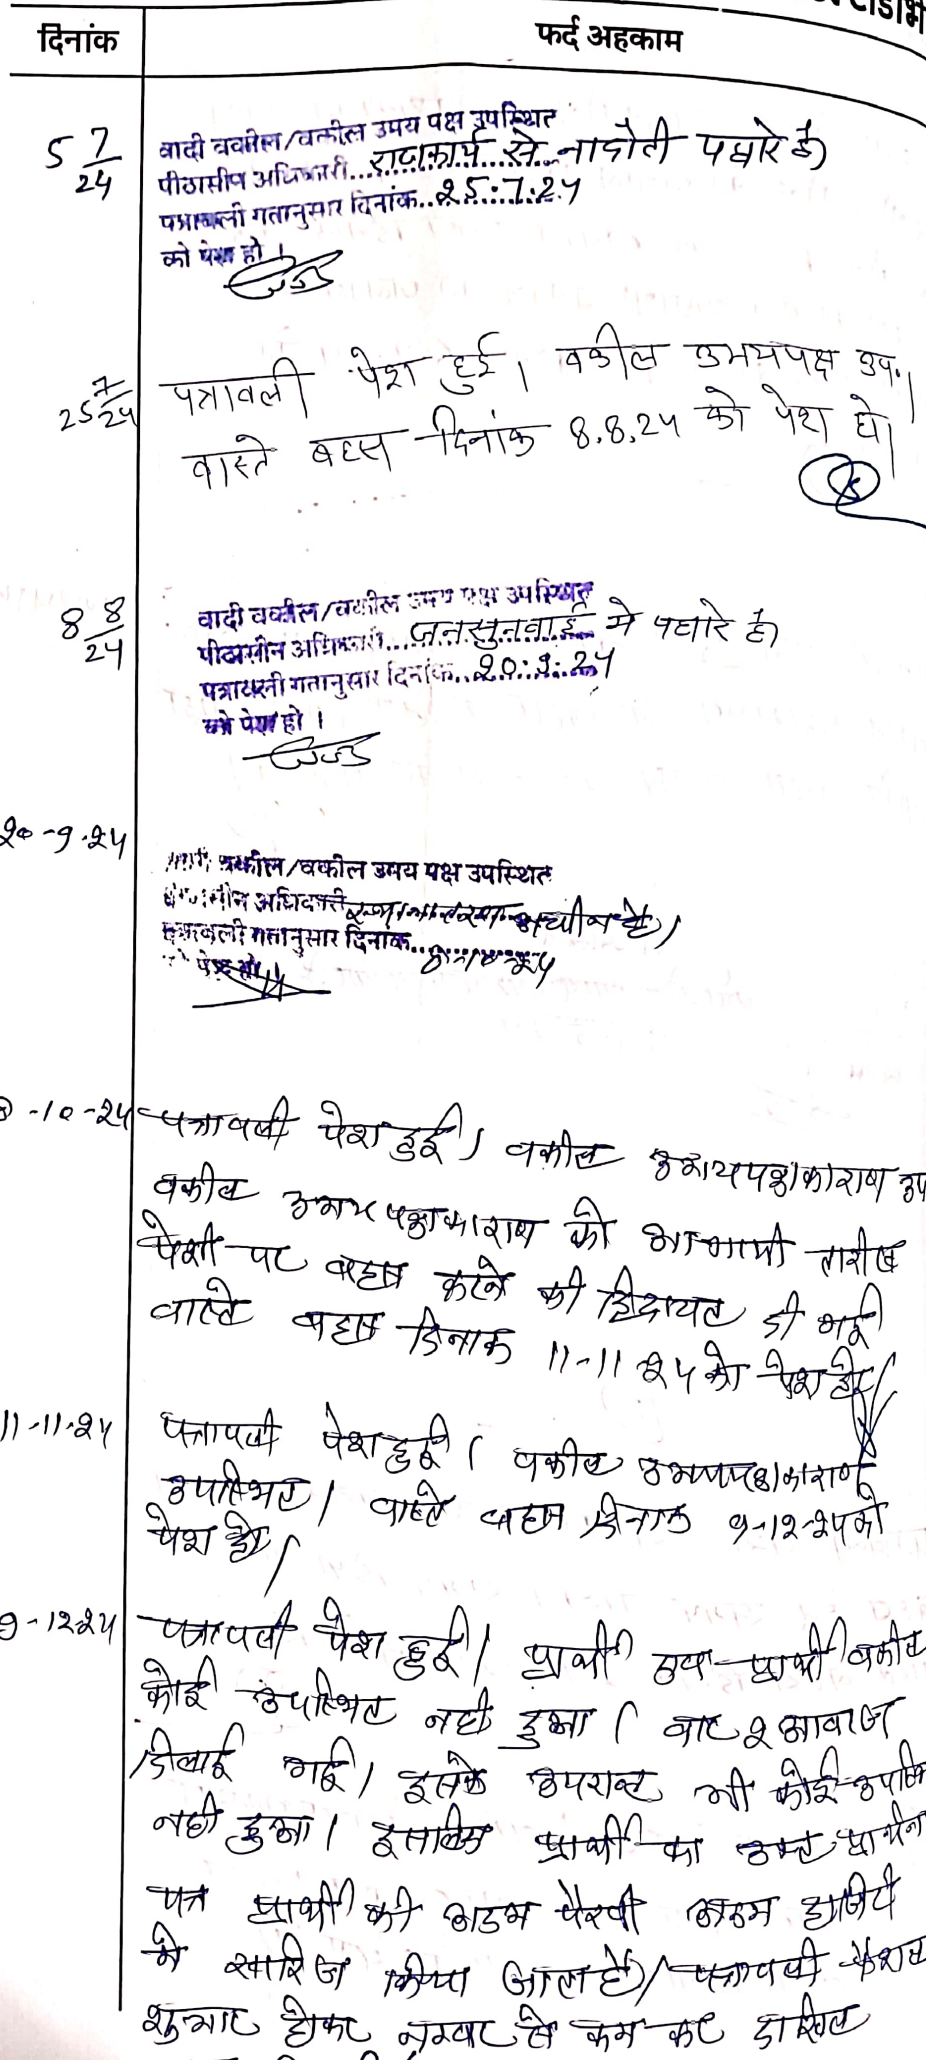 दिनांक
फर्द अहकाम
5 7/24
वादी वकील/वकील उभय पक्ष उपस्थित
पीठासीन अधिकारी... राजकार्य से नादौती पधारे है।
पत्रावली गतानुसार दिनांक..25.7.24
को पेश हो।
25 7/24
पत्रावली पेश हुई। वकील उभयपक्ष उप.।
वास्ते बहस दिनांक 8.8.24 को पेश हो।
8 8/24
वादी वकील/वकील उभय पक्ष उपस्थित
पीठासीन अधिकारी... जनसुनवाई में पधारे है।
पत्रावली गतानुसार दिनांक..20.9.24
को पेश हो।
20-9-24
वकील/वकील उभय पक्ष उपस्थित
अधिकारी स्थानान्तरणाधीन है।
पत्रावली गतानुसार दिनांक...
पेश हो।
-10-24
पत्रावली पेश हुई। वकील उभयपक्षकारान उप
वकील उभयपक्षकारान को आगामी तारीख
पेशी पर बहस करने की हिदायत दी गई
वास्ते बहस दिनांक 11-11-24 को पेश हो।
11-11-24
पत्रावली पेश हुई। वकील उभयपक्षकारान
उपस्थित। वास्ते बहस दिनांक 9-12-24 को
पेश हो।
9-12-24
पत्रावली पेश हुई। प्रार्थी प्रार्थी वकील
कोई उपस्थित नहीं हुआ। बार 2 आवाज
दिलाई गई। इसके उपरान्त भी कोई उपस्थि
नहीं हुआ। इसलिए प्रार्थी का प्रार्थना
पत्र प्रार्थी की अदम पैरवी अदम हाजिरी
में खारिज किया जाता है। पत्रावली फैशल
शुमार होकर नम्बर से कम कर दाखिल